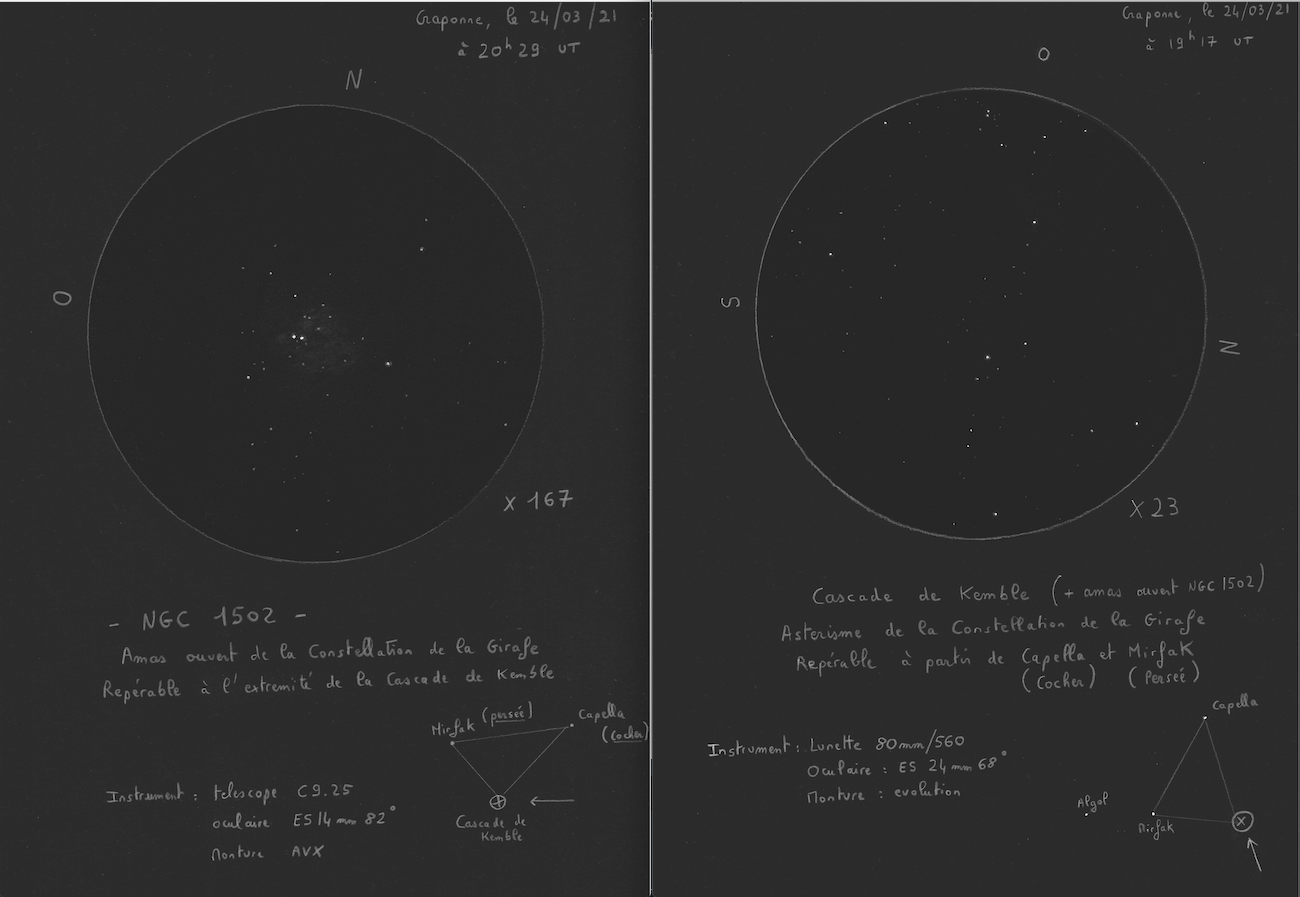 Craponne, le 24/03/21
à 20h29 UT
N
O
X 167
- NGC 1502 -
Amas ouvert de la Constellation de la Girafe
Repérable à l'extremité de la Cascade de Kemble
Mirfak (persée)
Capella
(Cocher)
Cascade de
Kemble
Instrument : telescope C9.25
oculaire ES 14 mm 82°
Monture AVX
Craponne, le 24/03/21
à 19h17 UT
O
S
N
X 23
Cascade de Kemble (+ amas ouvert NGC 1502)
Asterisme de la Constellation de la Girafe
Repérable à partir de Capella et Mirfak
(Cocher) (Persée)
Capella
Instrument : Lunette 80mm/560
Oculaire : ES 24 mm 68°
Monture : evolution
Algol
Mirfak